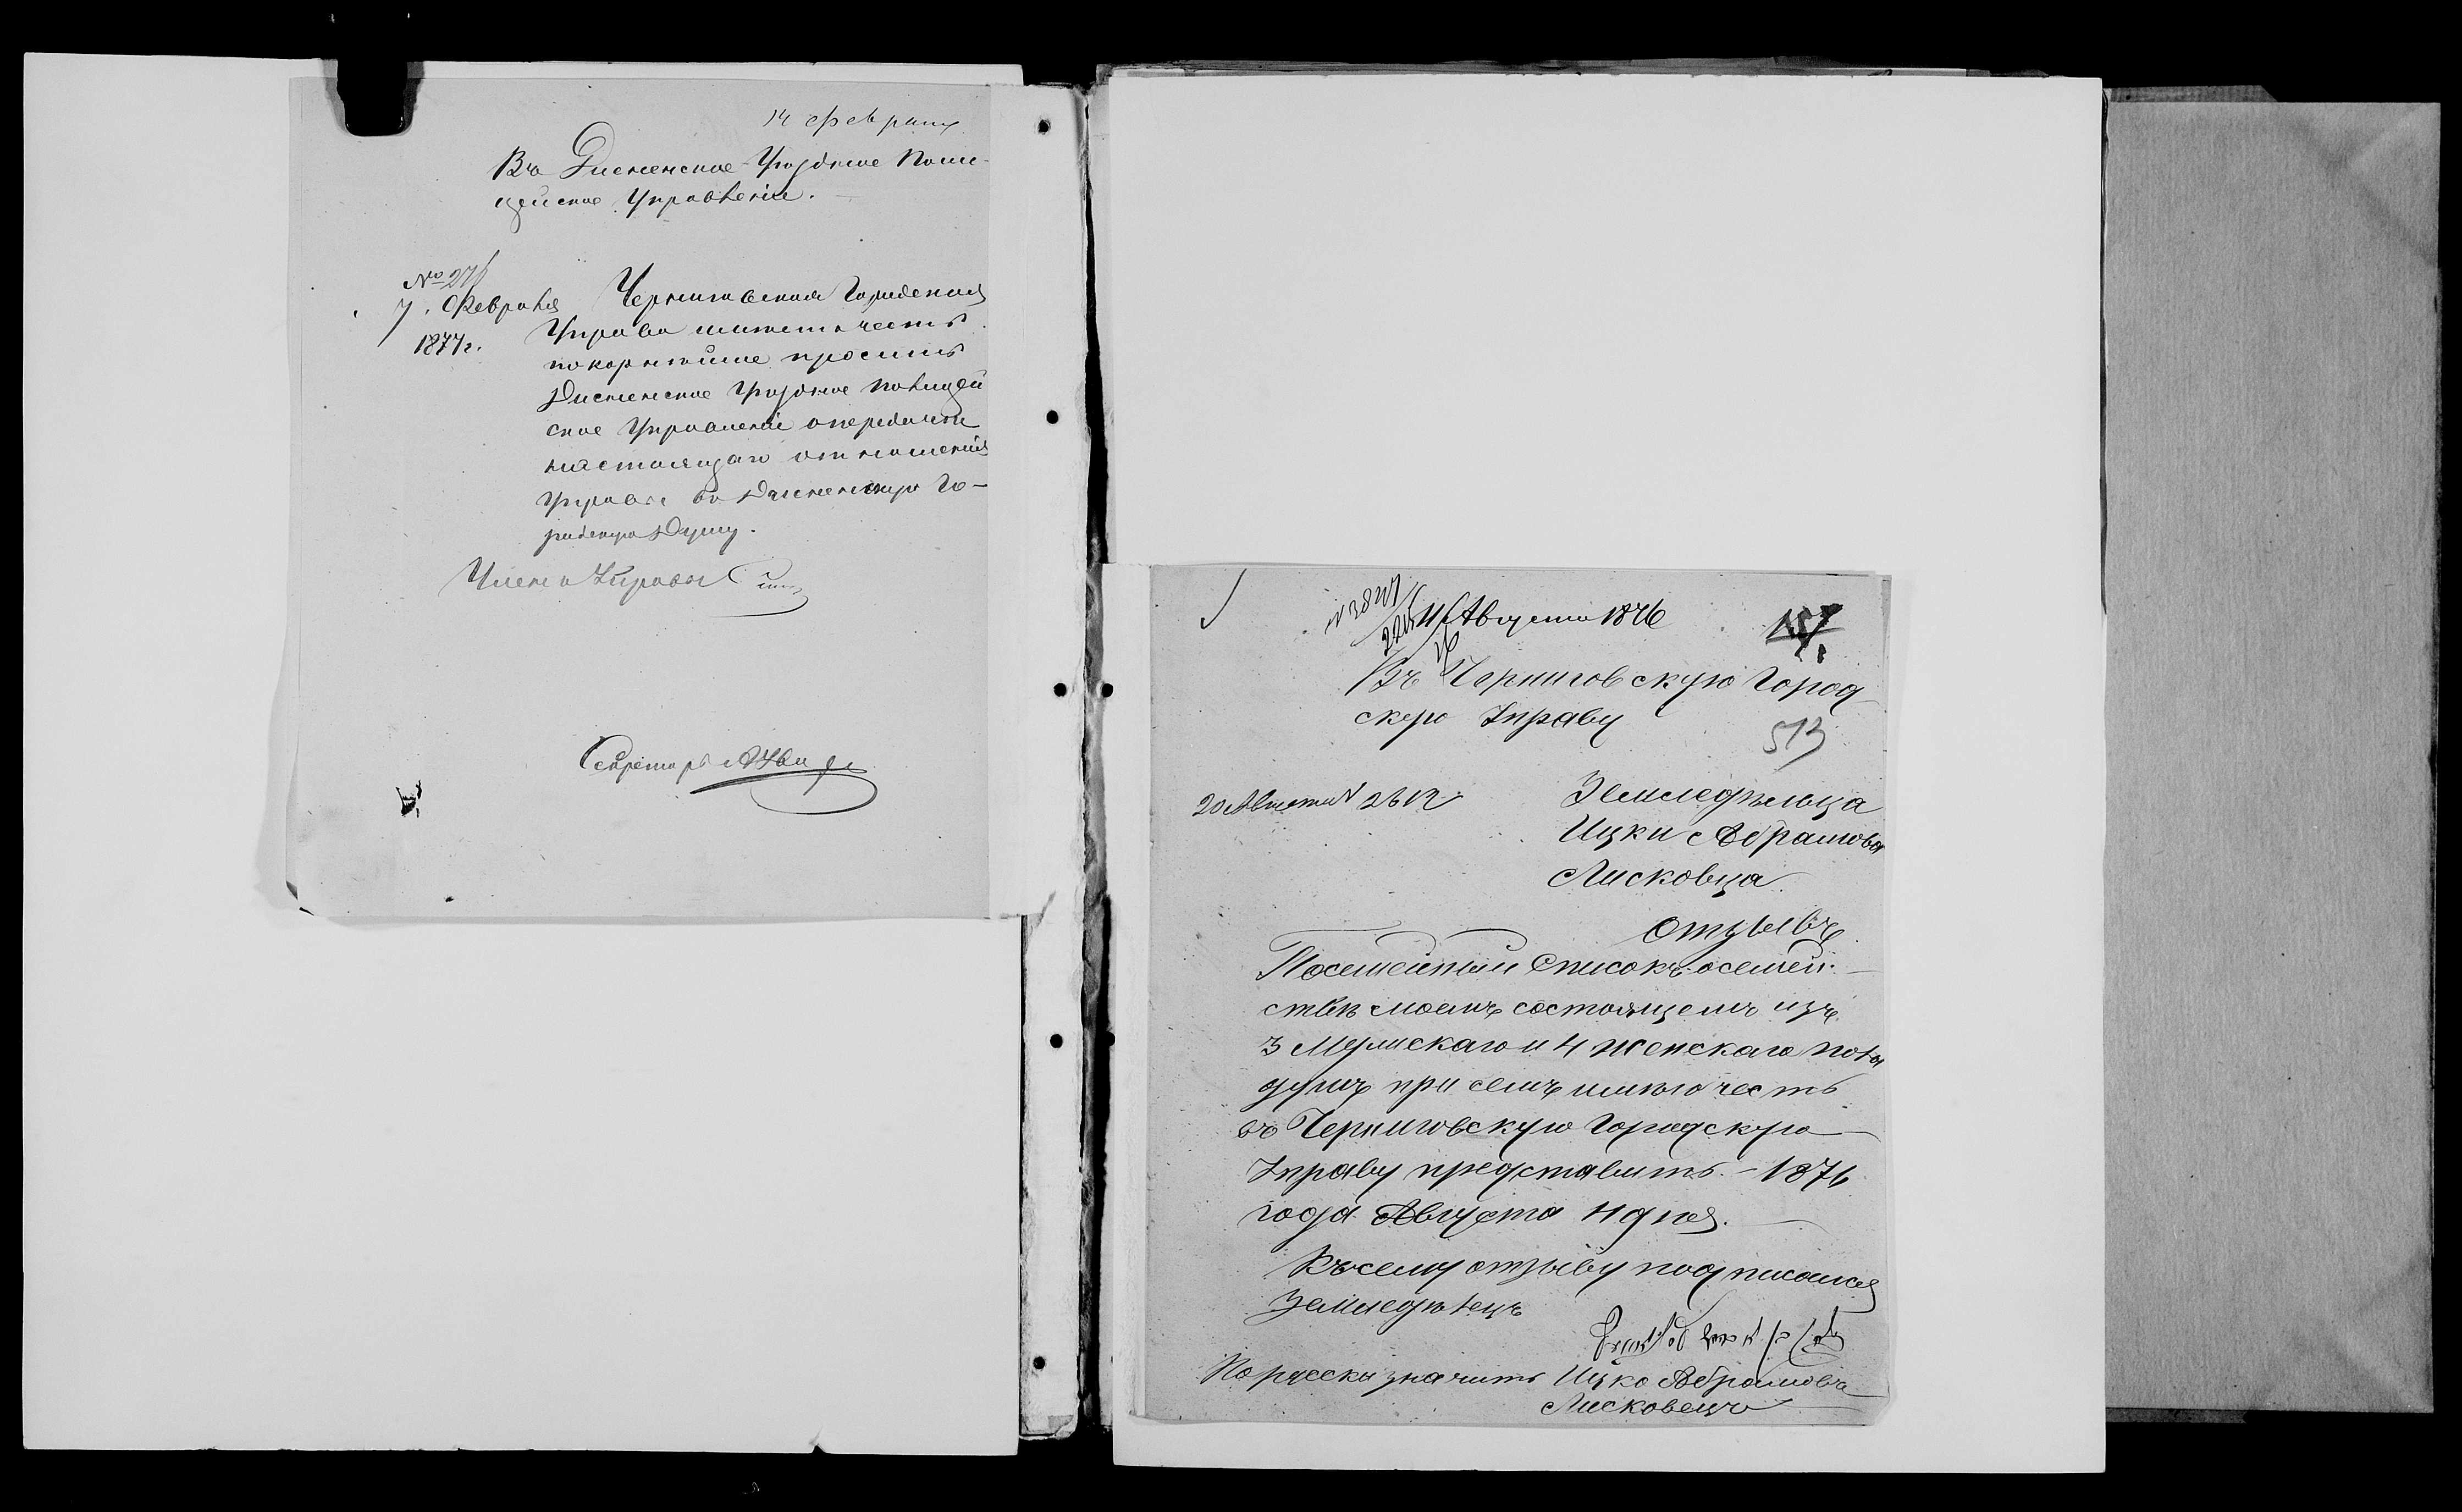 14 февраля
Въ Дисненское Уѣздное Поли-
цейское Управленіе.
№ 276
7. Февраля
1877 г.
Черниговская Городская
Управа имѣетъ честь
покорнѣйше просить
Дисненское Уѣздное Полицей
ское Управленіе о передачѣ
настоящаго отношенія
Управы въ Дисненскую Го-
родскую Думу.
Членъ Управы
Секретарь
11 Августа 1876
157
Въ Черниговскую Город
скую Управу
513
20 Августа № 2612
Земледѣльца
Ицки Абрамова
Лисковца
Отзывъ
Посемейный Списокъ о семей-
ствѣ моемъ состоящемъ изъ
3 Мужскаго и 4 Женскаго пола
душъ при семъ имѣю честь
въ Черниговскую Городскую
Управу представить. - 1876
года Августа 11 дня.
Къ сему отзыву подписался
Земледѣлецъ
По русски значитъ Ицко Абрамовъ
Лисковецъ